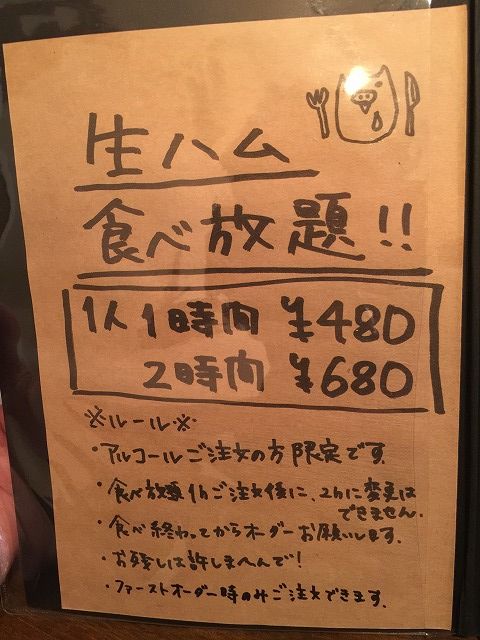 生ハム
食べ放題!!
1人 1時間 ¥480
2時間 ¥680
※ルール※
・アルコールご注文の方限定です。
・食べ放題1hご注文後に、2hに変更は
できません。
・食べ終わってからオーダーお願いします。
・お残しは許しまへんで!
・ファーストオーダー時のみご注文できます。